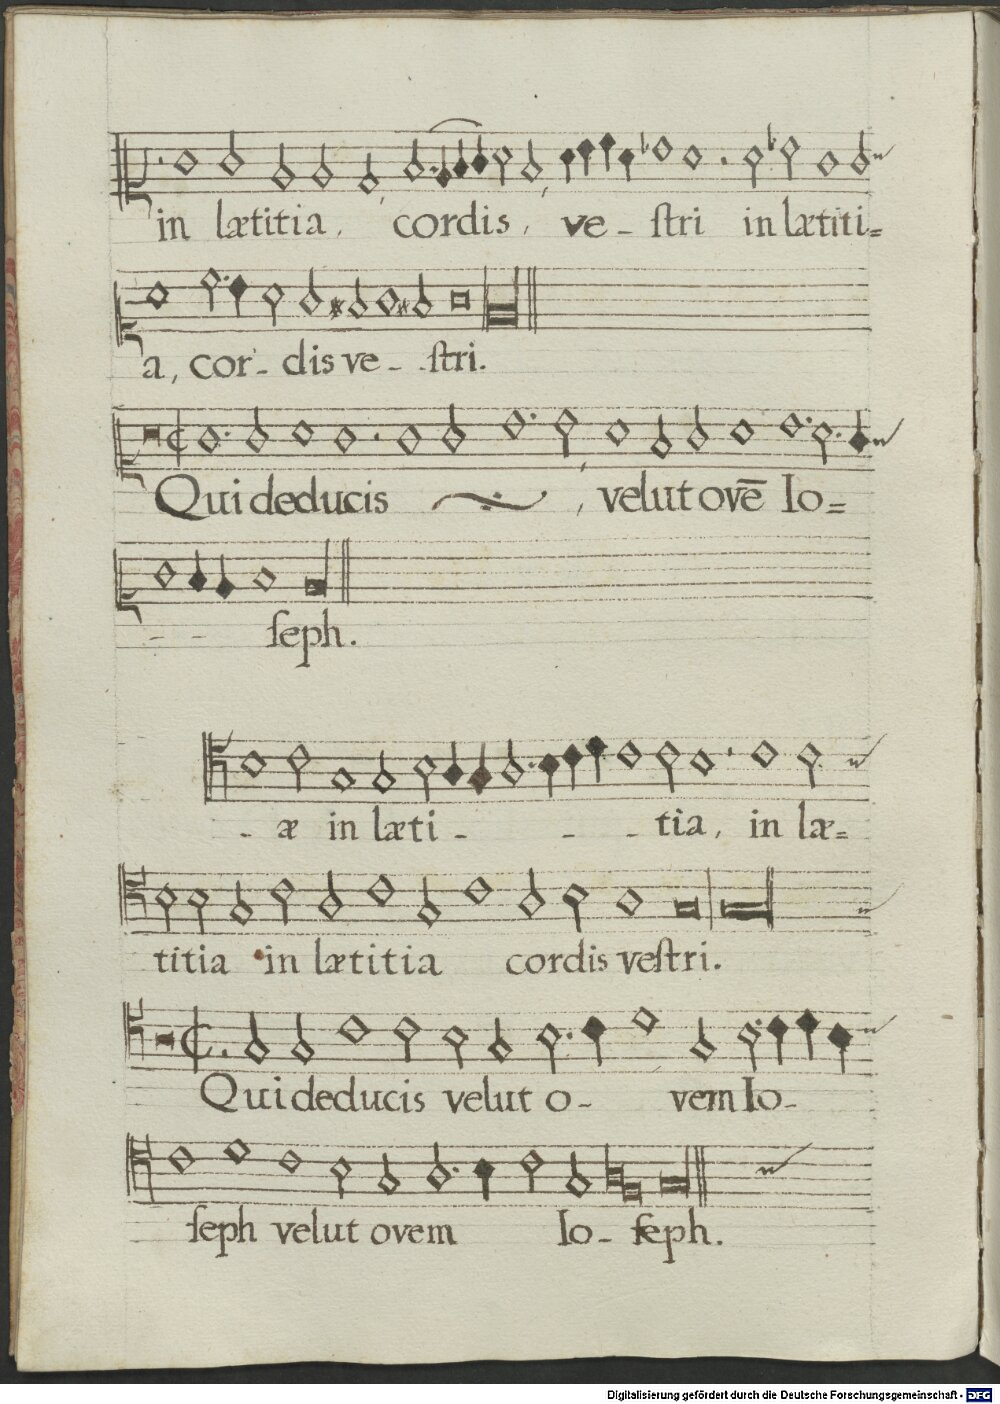 in lætitia, cordis, ve - ſtri in lætiti=
a, cor - dis ve - - ſtri.
Qui deducis , velut ovē Io=
- - ſeph.
- æ in læti - - - tia, in læ=
titia in lætitia cordis veſtri.
Qui deducis velut o - vem Io -
ſeph velut ovem Io - ſeph.
Digitalisierung gefördert durch die Deutsche Forschungsgemeinschaft - DFG